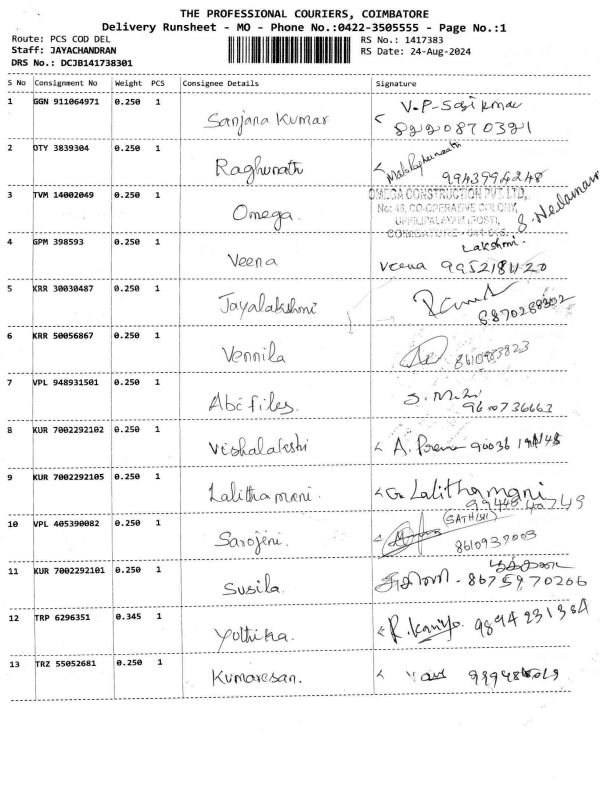 THE PROFESSIONAL COURIERS, COIMBATORE
Delivery Runsheet - MO - Phone No.:0422-3505555 - Page No.:1
Route: PCS COD DEL RS No.: 1417383
Staff: JAYACHANDRAN RS Date: 24-Aug-2024
DRS No.: DCJB141738301
S No Consignment No Weight PCS Consignee Details Signature
1 GGN 911064971 0.250 1 Sanjana Kumar V.P-Sasikmar
8220870321
2 OTY 3839304 0.250 1 Raghunath
9943994248
3 TVM 14002049 0.250 1 Omega. OMEGA CONSTRUCTION PVT. LTD.,
No: 43, CO-OPERATIVE COLONY,
UPPILIPALAYAM (POST),
COIMBATORE - 641 015.
4 GPM 398593 0.250 1 Veena Lakshmi.
Veena
5 KRR 30030487 0.250 1 Jayalakshmi
8870288302
6 KRR 50056867 0.250 1 Vennila 8610983823
7 VPL 948931501 0.250 1 Abi files.
9600736663
8 KUR 7002292102 0.250 1 Vishalakshi
9 KUR 7002292105 0.250 1 Lalitha mani. Lalithamani
10 VPL 405390082 0.250 1 Sarojini. (SATHISH)
8610937003
11 KUR 7002292101 0.250 1 Susila. 8675970206
12 TRP 6296351 0.345 1 Yuthika. 9894231384
13 TRZ 55052681 0.250 1 Kumaresan.